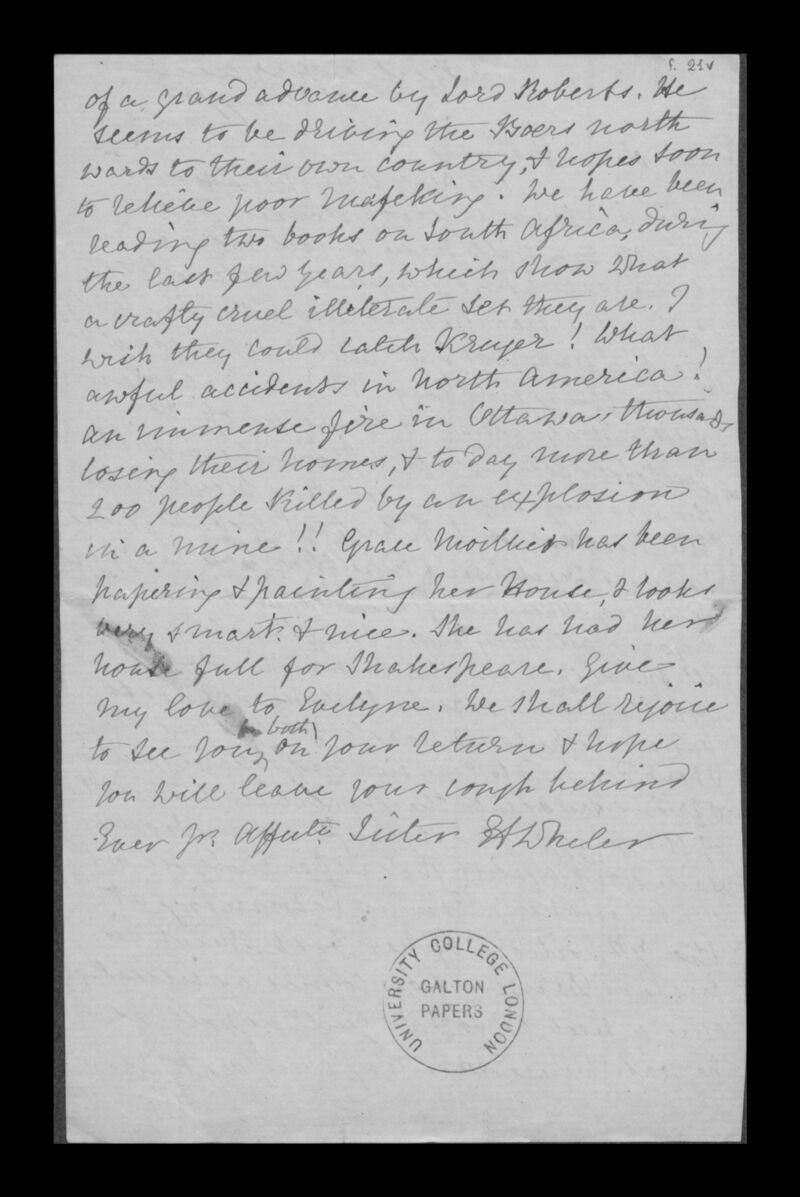 f. 21v
of a grand advance by Lord Roberts. He
seems to be driving the Boers north
wards to their own country, & hopes soon
to relieve poor Mafeking. We have been
reading two books on South Africa, during
the last few years, which show what
a crafty cruel illiterate set they are. I
wish they could catch Kruger! What
awful accidents in North America!
an immense fire in Ottawa, thousands
losing their homes, & to day more than
200 people killed by an explosion
in a mine!! Grace Moilliet has been
papering & painting her House, & looks
very smart & nice. She has had her
house full for Shakespeare. Give
my love to Evelyne. We shall rejoice
both
to see you on your return & hope
you will leave your cough behind
Ever yr. Affecte. Sister EAWheler
UNIVERSITY COLLEGE LONDON
GALTON
PAPERS